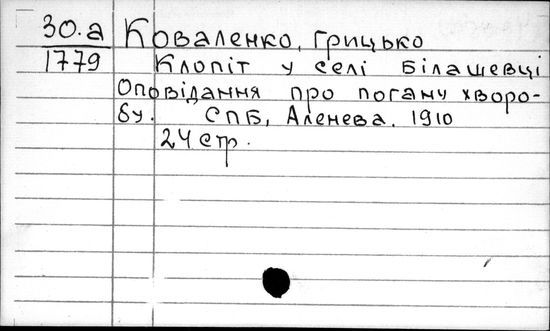 30.а Коваленко, Грицько
1779 Клопіт у селі Білашевці
Оповідання про погану хворо-
бу. СПБ, Аленева. 1910
24 стр.